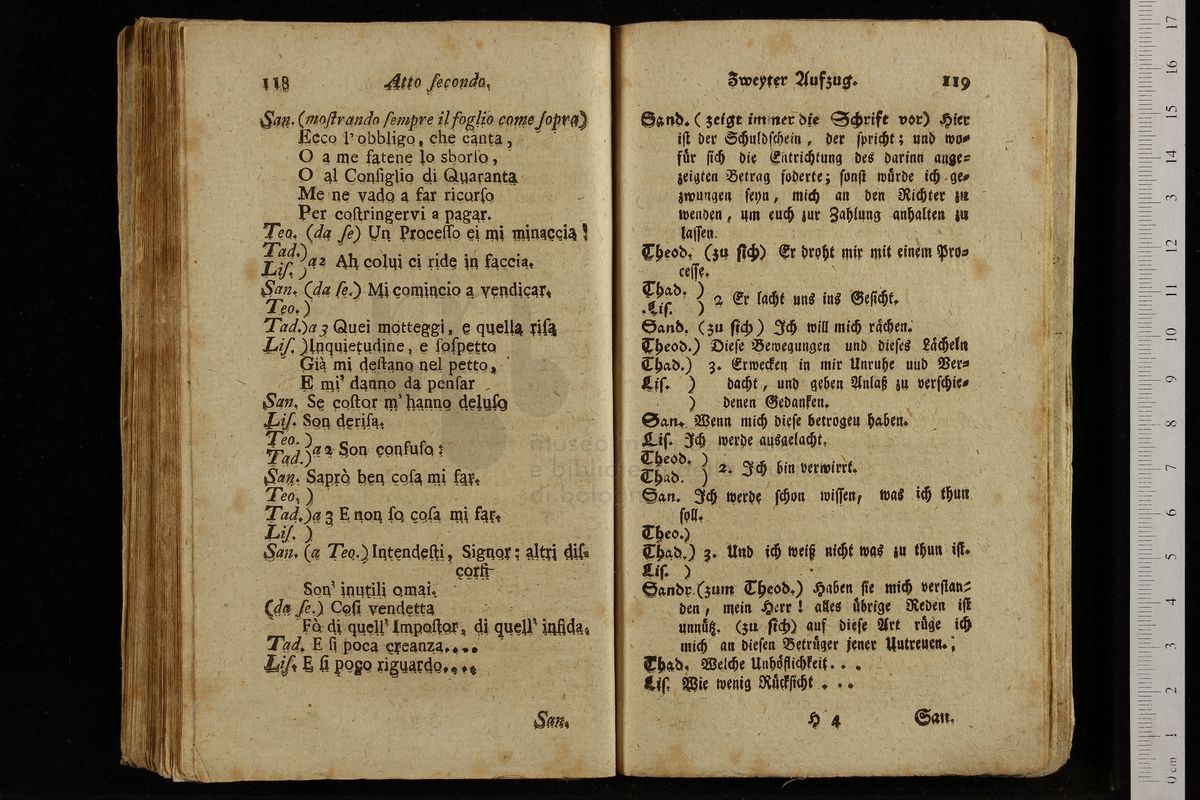 118 Atto ſecondo.
San. (moſtrando ſempre il foglio come ſopra)
Ecco l'obbligo, che canta,
O a me fatene lo sborſo,
O al Conſiglio di Quaranta
Me ne vado a far ricorſo
Per coſtringervi a pagar.
Teo. (da ſe) Un Proceſſo ei mi minaccia!
Tad.)
Liſ. ) a 2 Ah colui ci ride in faccia.
San. (da ſe.) Mi comincio a vendicar.
Teo.)
Tad.)a 3 Quei motteggi, e quella riſa
Liſ. )Inquietudine, e ſoſpetto
Già mi deſtano nel petto,
E mi' danno da penſar
San. Se coſtor m'hanno deluſo
Liſ. Son deriſa.
Teo. )
Tad.) a 2 Son confuſo:
San. Saprò ben coſa mi far.
Teo. )
Tad.)a 3 E non ſo coſa mi far.
Liſ. )
San. (a Teo.) Intendeſti, Signor: altri diſ-
corſi
Son' inutili omai.
(da ſe.) Coſi vendetta
Fò di quell' Impoſtor, di quell' infida.
Tad. E ſi poca creanza....
Liſ. E ſi pogo riguardo....
San.
Zweyter Aufzug. 119
Sand. (zeigt immer die Schrift vor) Hier
iſt der Schuldſchein, der ſpricht; und wo-
für ſich die Entrichtung des darinn ange-
zeigten Betrag foderte; ſonſt würde ich ge-
zwungen ſeyn, mich an den Richter zu
wenden, um euch zur Zahlung anhalten zu
laſſen.
Theod. (zu ſich) Er droht mir mit einem Pro-
ceſſe.
Thad. )
Liſ. ) 2 Er lacht uns ins Geſicht.
Sand. (zu ſich) Ich will mich rächen.
Theod.) Dieſe Bewegungen und dieſes Lächeln
Thad.) 3. Erwecken in mir Unruhe und Ver-
Liſ. ) dacht, und geben Anlaß zu verſchie-
) denen Gedanken.
San. Wenn mich dieſe betrogen haben.
Liſ. Ich werde ausgelacht.
Theod. )
Thad. ) 2. Ich bin verwirrt.
San. Ich werde ſchon wiſſen, was ich thun
ſoll.
Theo.)
Thad.) 3. Und ich weiß nicht was zu thun iſt.
Liſ. )
Sandr. (zum Theod.) Haben ſie mich verſtan-
den, mein Herr! alles übrige Reden iſt
unnütz. (zu ſich) auf dieſe Art rüge ich
mich an dieſen Betrüger jener Untreuen.
Thad. Welche Unhöflichkeit...
Liſ. Wie wenig Rückſicht...
H 4 San.